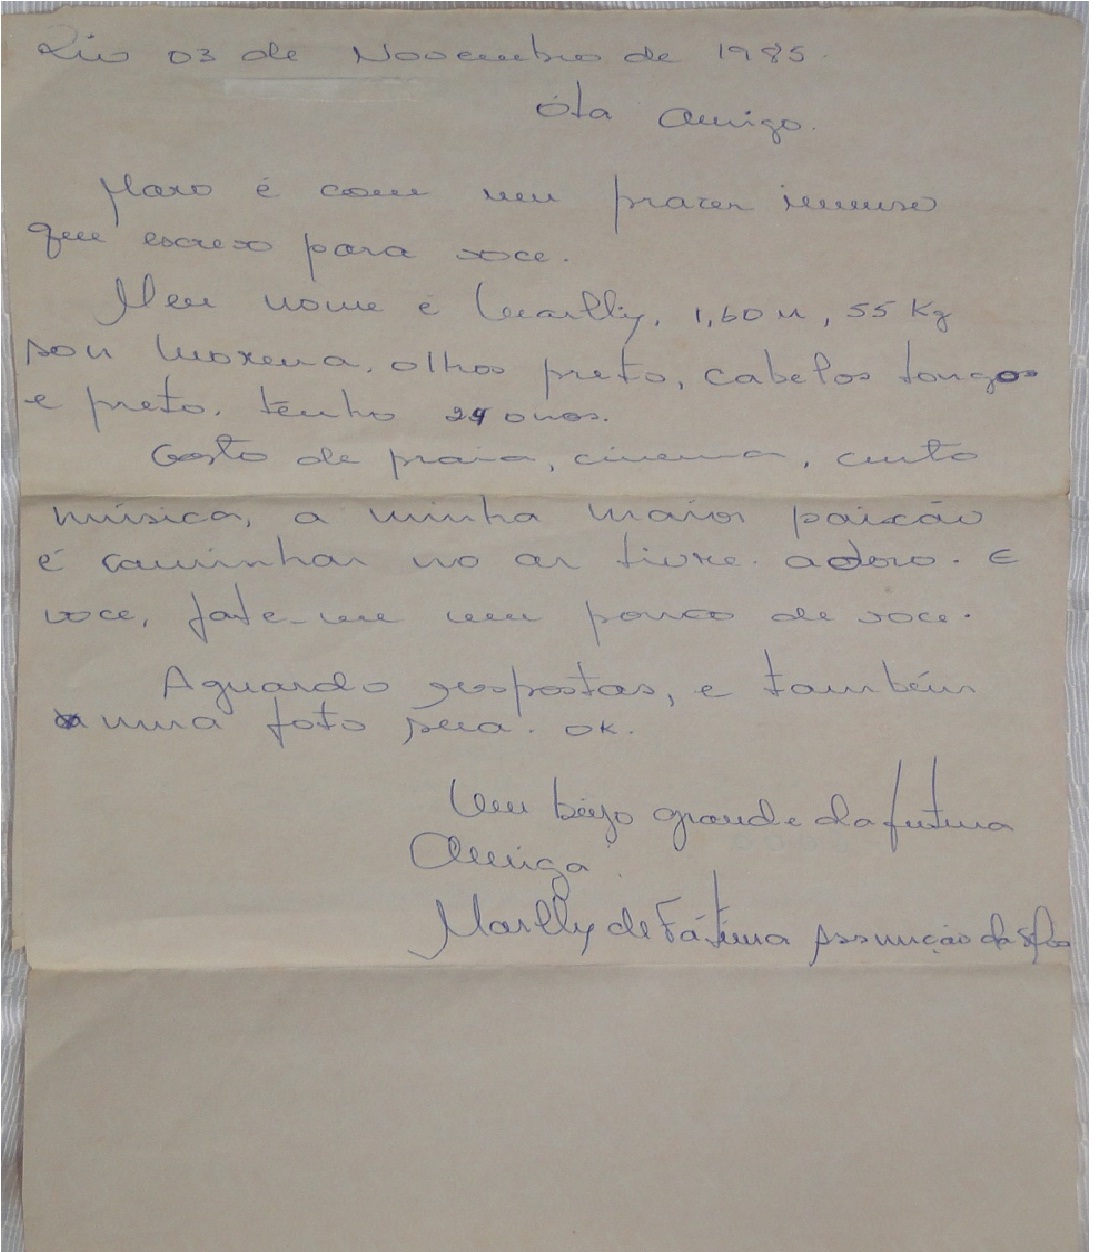 Rio 03 de Novembro de 1985.
Óla amigo.
é com um prazer imenso
que escrevo para voce.
Meu nome é Marlly, 1,60 m, 55 Kg
sou morena, olhos preto, cabelos longos
e preto. tenho 24 anos.
Gosto de praia, cinema, curto
música, a minha maior paixão
é caminhar no ar livre. adoro. E
voce, fale-me um pouco de voce.
Aguardo respostas, e também
uma foto sua. OK.
Um beijo grande da futura
Amiga.
Marlly de Fátima Assunção da